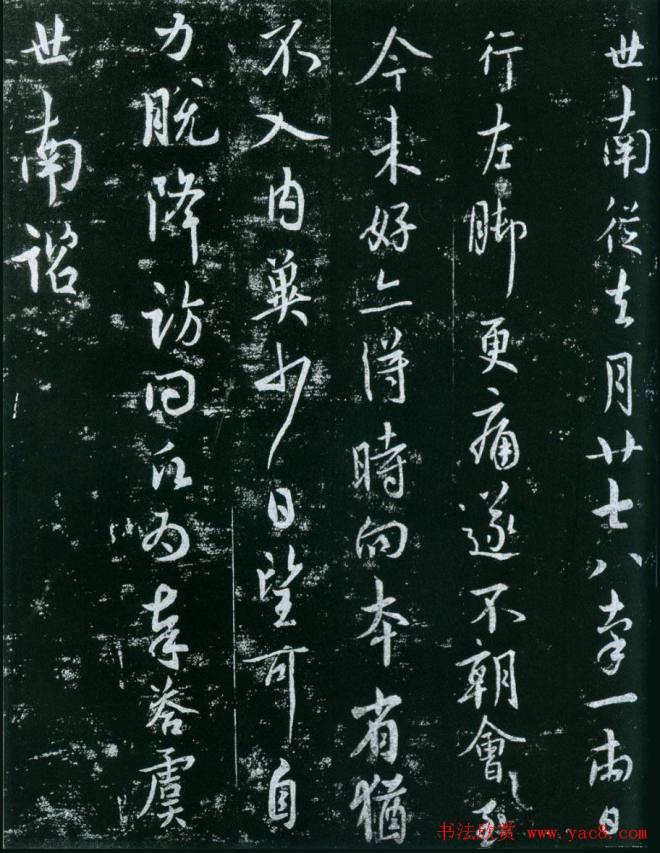 世南從去月廿七八率一兩日
行左脚更痛遂不朝會至
今未好亦得時向本省猶
不入内冀少日望可自
力脱降訪問願為奉荅虞
世南諮
书法欣赏 www.yac8.com